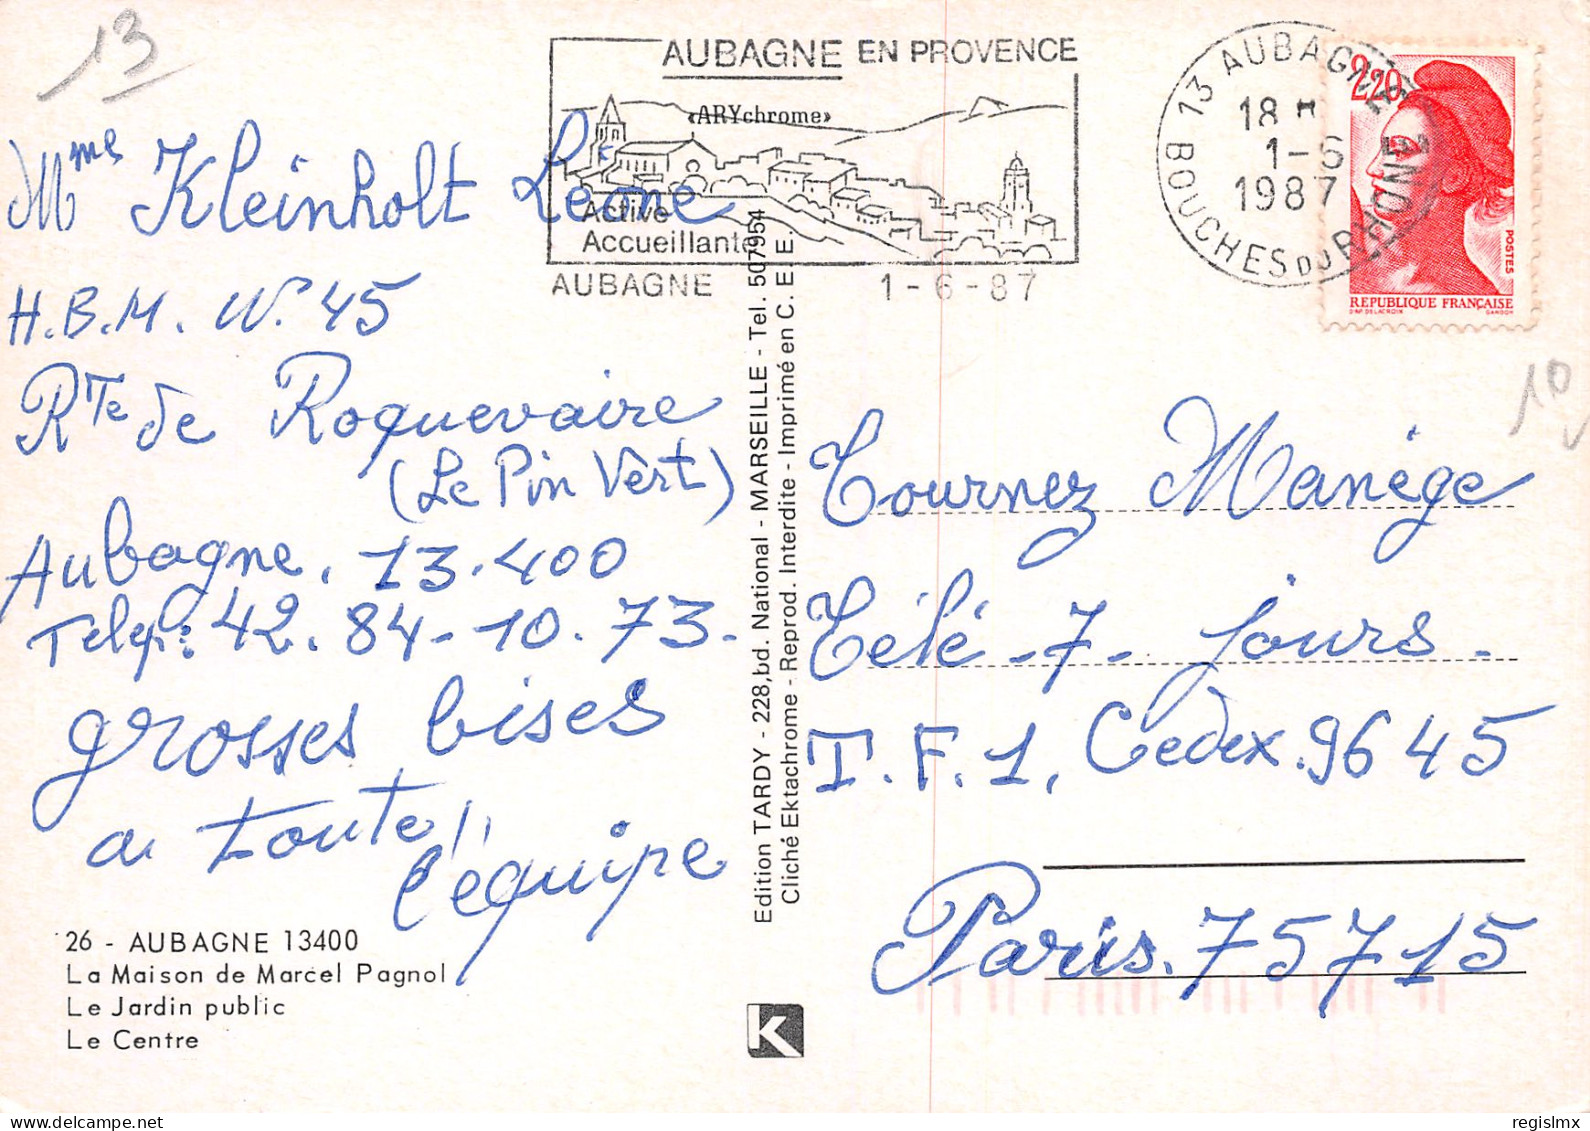 13
AUBAGNE EN PROVENCE
«ARYchrome»
Active
Accueillante
AUBAGNE 1-6-87
13 AUBAGNE
18 H
1-6
1987
BOUCHES DU RHONE
2,20
POSTES
REPUBLIQUE FRANÇAISE
D'AP. DELACROIX GANDON
Mme Kleinholt Léone
H.B.M. N° 45
Rte de Roquevaire
(Le Pin Vert)
Aubagne. 13.400
Telep: 42.84-10.73-
grosses bises
a toute
l'équipe
26 - AUBAGNE 13400
La Maison de Marcel Pagnol
Le Jardin public
Le Centre
Edition TARDY - 228, bd. National - MARSEILLE - Tel. 507954
Cliché Ektachrome - Reprod. Interdite - Imprimé en C. E. E.
K
10
Tournez Manège
Télé-7-jours-
T.F.1, Cedex.9645
Paris.75715
regislmx